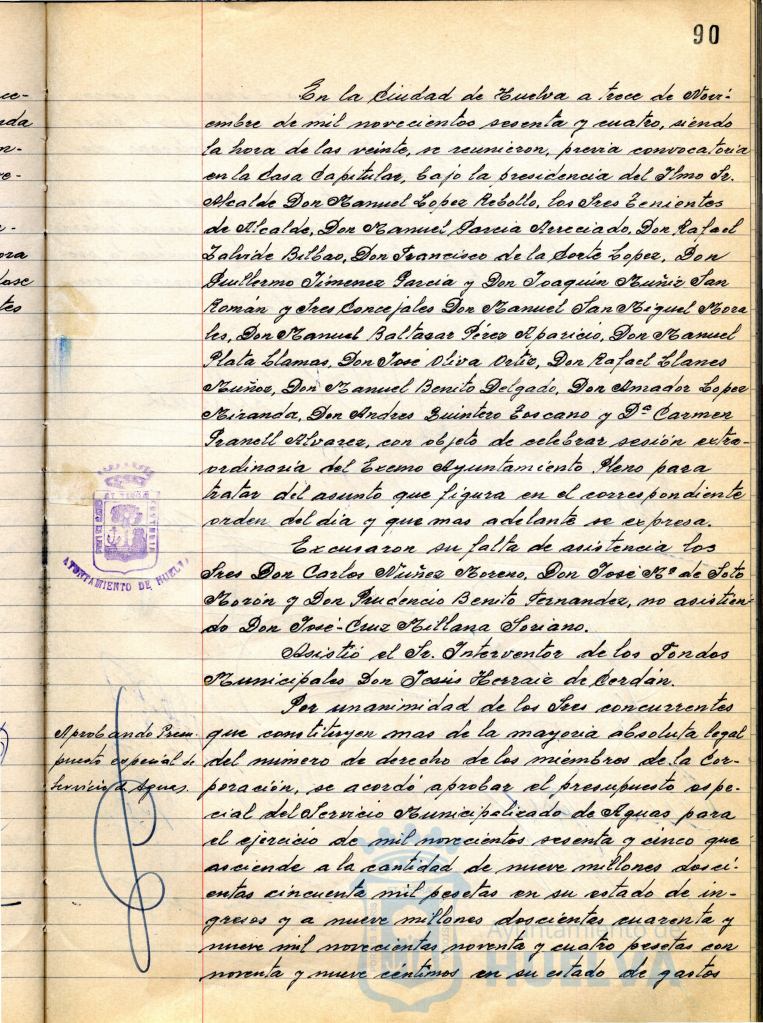 90
En la Ciudad de Huelva a trece de Novi-
embre de mil novecientos sesenta y cuatro, siendo
la hora de las veinte, se reunieron, previa convocatoria
en la Casa Capitular, bajo la presidencia del Ilmo Sr.
Alcalde Don Manuel Lopez Rebollo, los Sres Tenientes
de Alcalde, Don Manuel Garcia Arreciado, Don Rafael
Zalvide Bilbao, Don Francisco de la Corte Lopez, Don
Guillermo Jimenez Garcia y Don Joaquín Muñiz San
Román y Sres Concejales Don Manuel San Miguel Mora
les, Don Manuel Baltasar Pérez Aparicio, Don Manuel
Plata Llamas, Don José Oliva Ortiz, Don Rafael Llanes
Muñoz, Don Manuel Benito Delgado, Don Amador Lopez
Miranda, Don Andres Quintero Toscano y Dª Carmen
Granell Alvarez, con objeto de celebrar sesión extra-
ordinaria del Excmo Ayuntamiento Pleno para
tratar del asunto que figura en el correspondiente
orden del día y que mas adelante se expresa.
Excusaron su falta de asistencia los
Sres Don Carlos Nuñez Moreno, Don José Mª de Soto
Morón y Don Prudencio Benito Fernandez, no asistien-
do Don José-Cruz Millana Soriano.
Asistió el Sr. Interventor de los Fondos
Municipales Don Jesús Herraiz de Cerdán.
Por unanimidad de los Sres concurrentes
que constituyen mas de la mayoria absoluta legal
del numero de derecho de los miembros de la Cor-
poración, se acordó aprobar el presupuesto espe-
cial del Servicio Municipalizado de Aguas para
el ejercicio de mil novecientos sesenta y cinco que
asciende a la cantidad de nueve millones dosci-
entas cincuenta mil pesetas en su estado de in-
gresos y a nueve millones doscientas cuarenta y
nueve mil novecientas noventa y cuatro pesetas con
noventa y nueve céntimos en su estado de gastos
Aprobando Presu-
puesto especial de
Servicio de Aguas.
AYUNTAMIENTO DE HUELVA
Ayuntamiento de
HUELVA
ce-
nda
n-
re-
r-
ora
José
tes